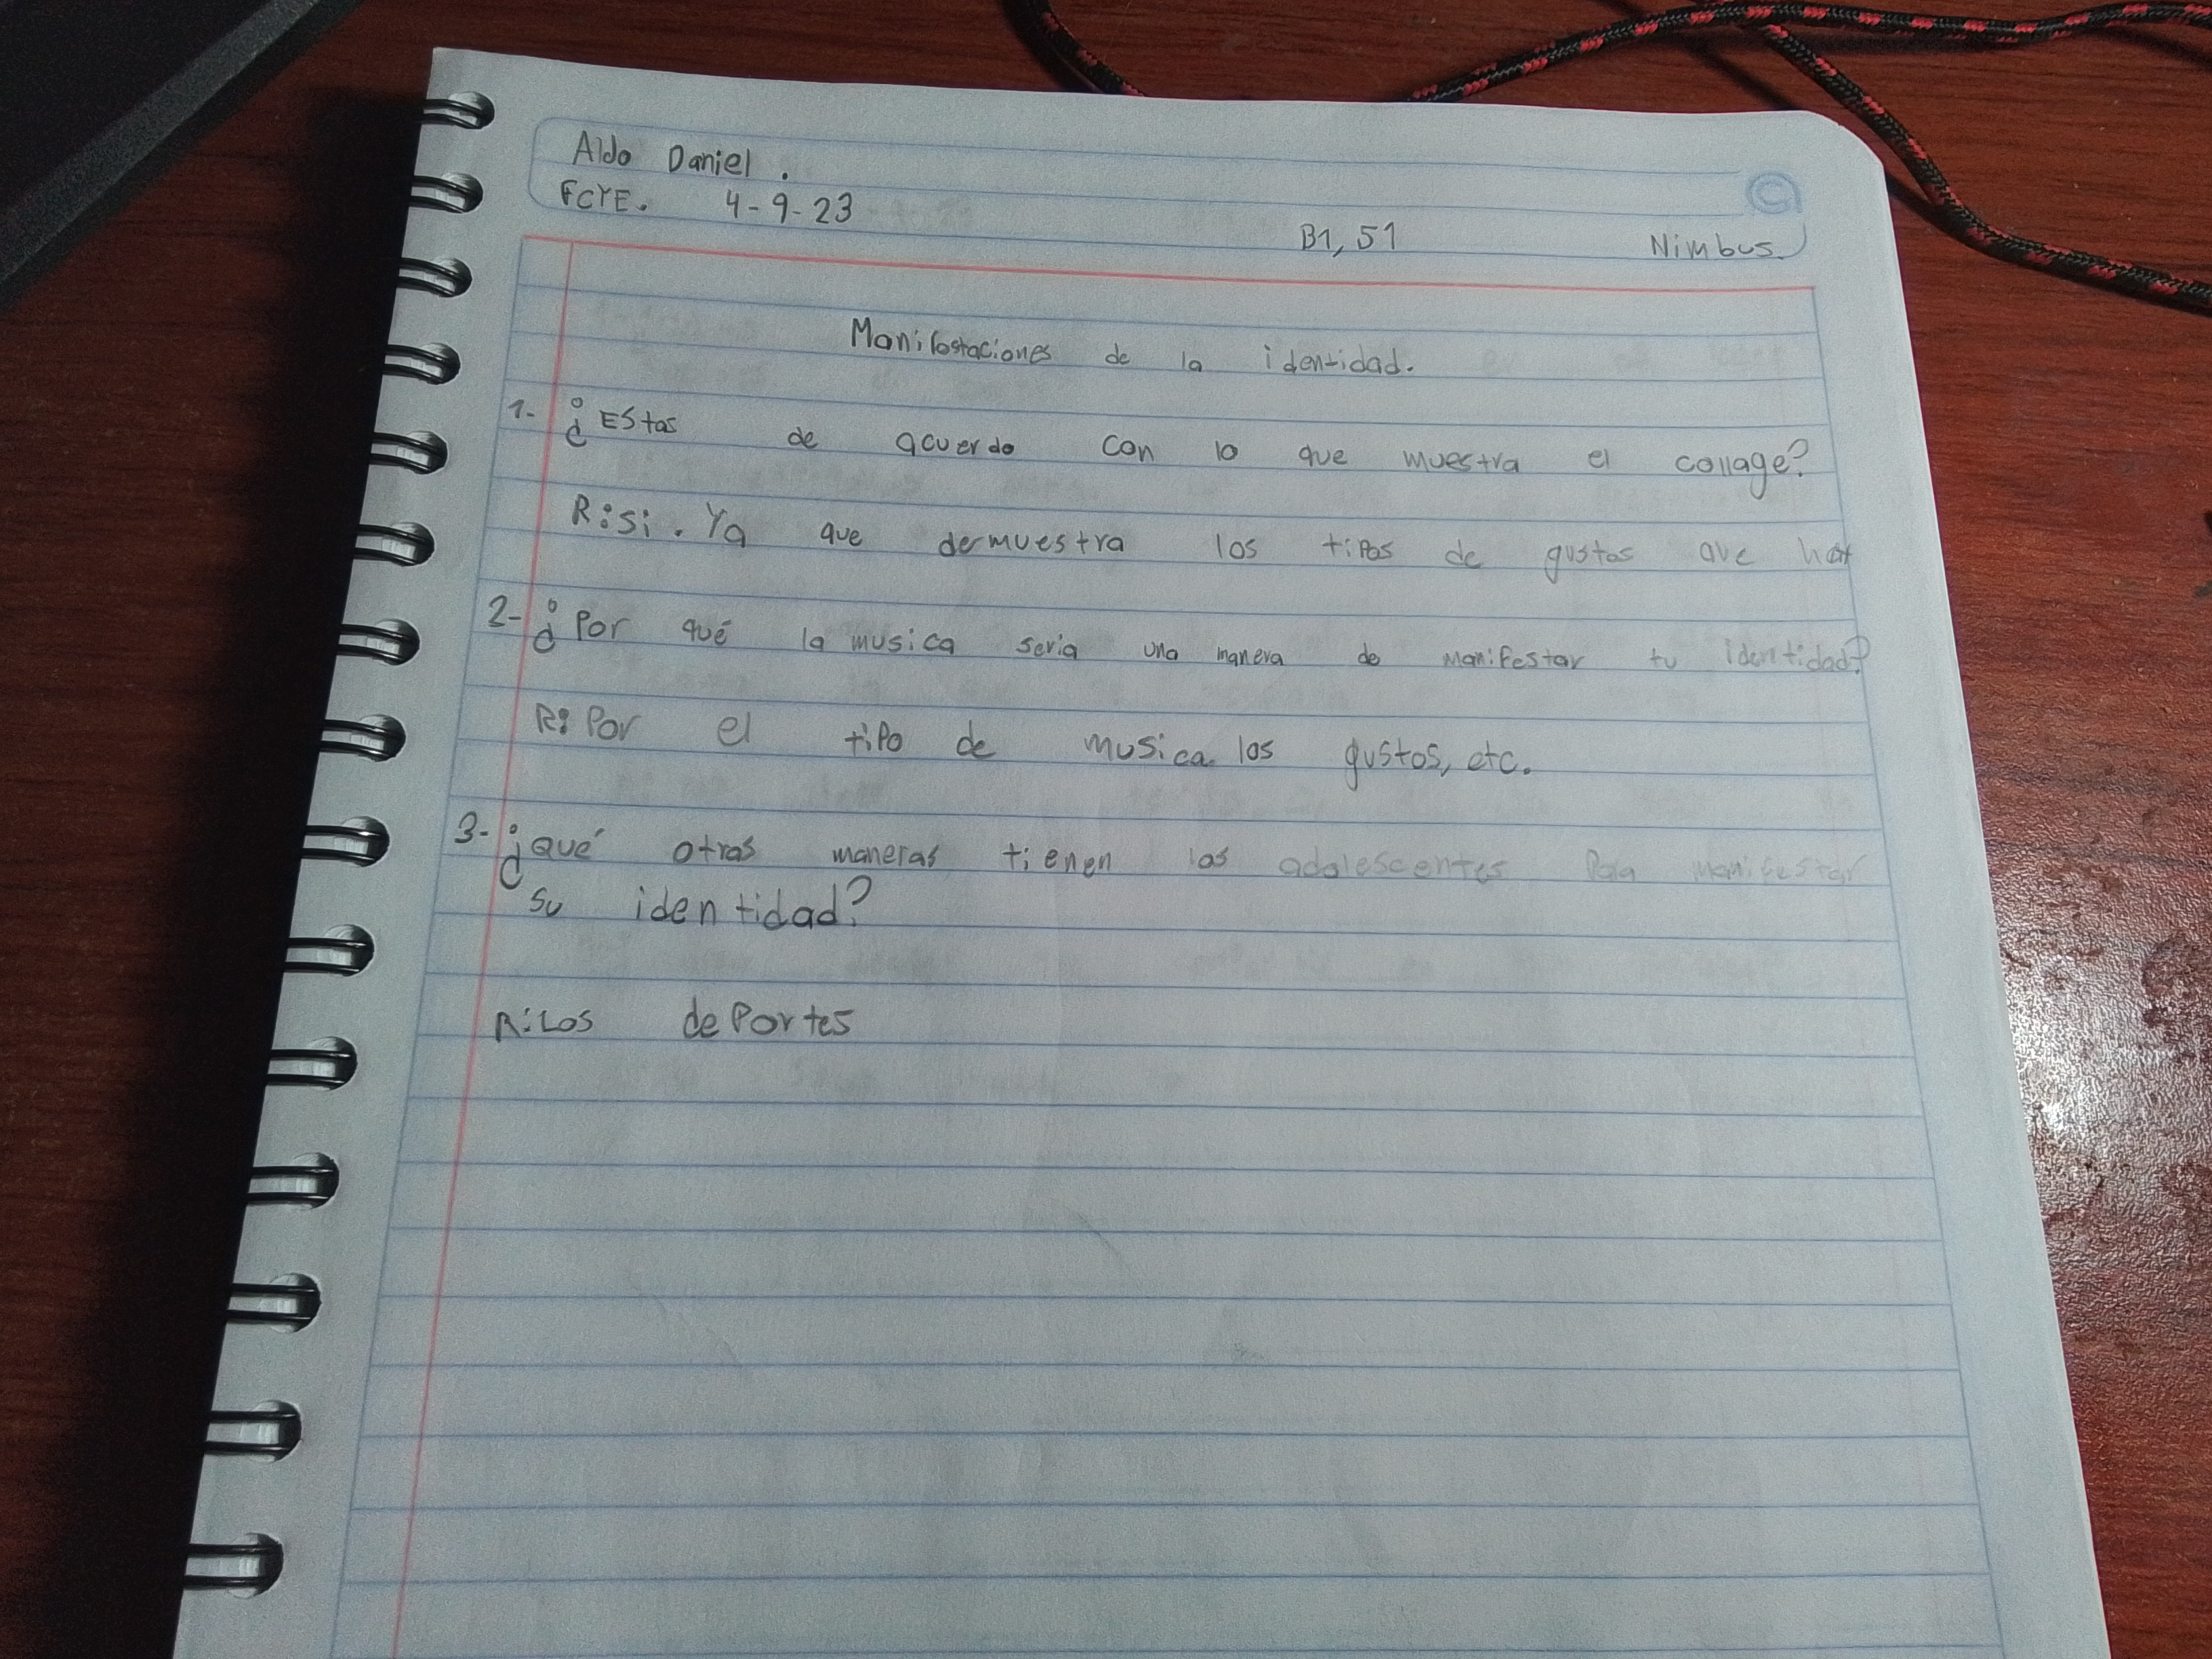 Aldo Daniel.
FCYE. 4-9-23
B1, S1 Nimbus.
Manifestaciones de la identidad.
1- ¿EStas de acuerdo con lo que muestra el collage?
R:si. Ya que dermuestra los tipos de gustos que hay
2- ¿Por qué la musica seria una manera de manifestar tu identidad?
R: Por el tipo de musica. los gustos, etc.
3- ¿qué otras maneras tienen los adolescentes Para manifestar
su identidad?
R:Los dePortes